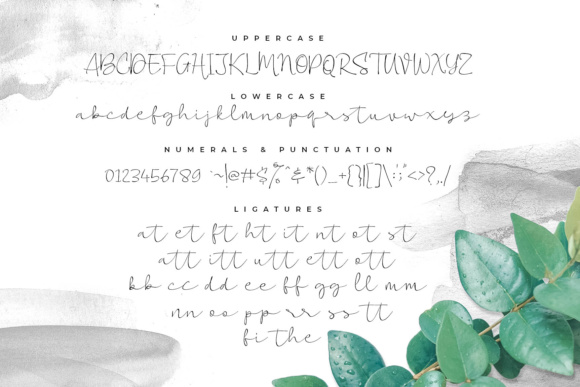 UPPERCASE
ABCDEFGHIJKLMNOPQRSTUVWXYZ
LOWERCASE
abcdefghijklmnopqrstuvwxyz
NUMERALS & PUNCTUATION
0123456789 `~!@#$%^&*()_+{}|[]\:;"'<>?,./
LIGATURES
at et ft ht it nt ot st
att itt utt ett ott
bb cc dd ee ff gg ll mm
nn oo pp rr ss tt
fi the